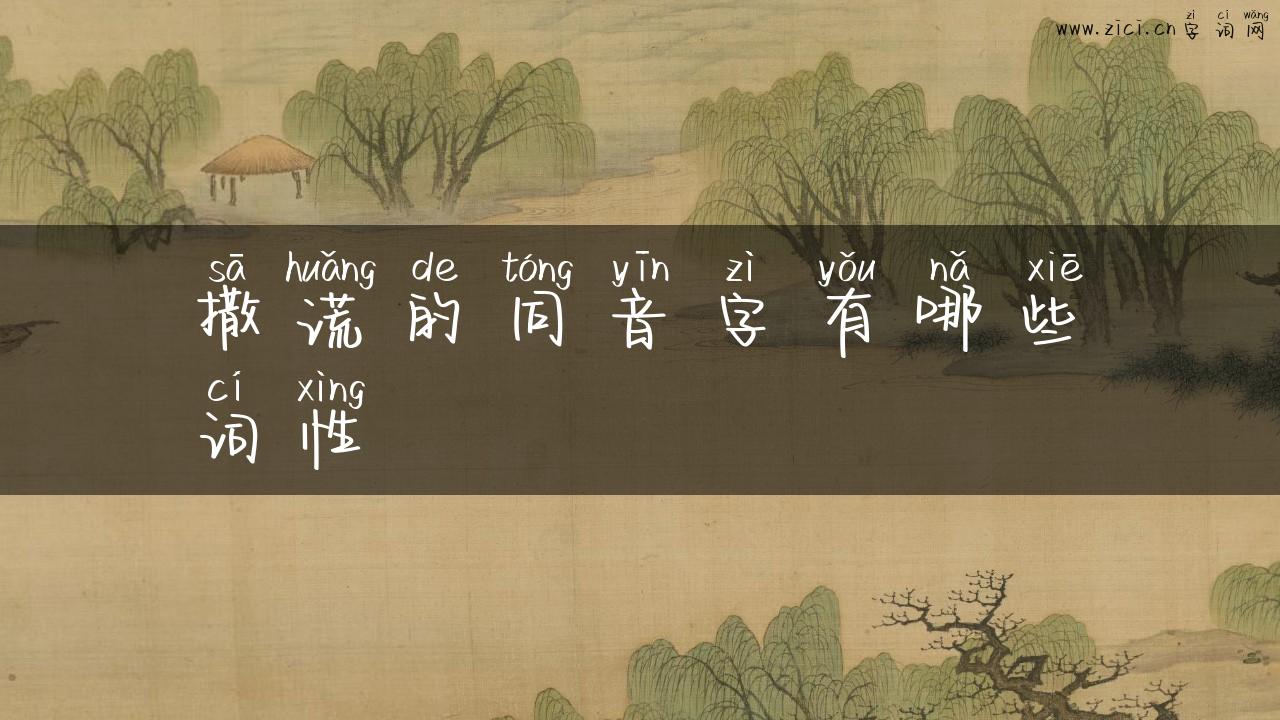 zì cí wǎng
www.zici.cn 字 词 网
sā huǎng de tóng yīn zì yǒu nǎ xiē
撒 谎 的 同 音 字 有 哪 些
cí xìng
词 性